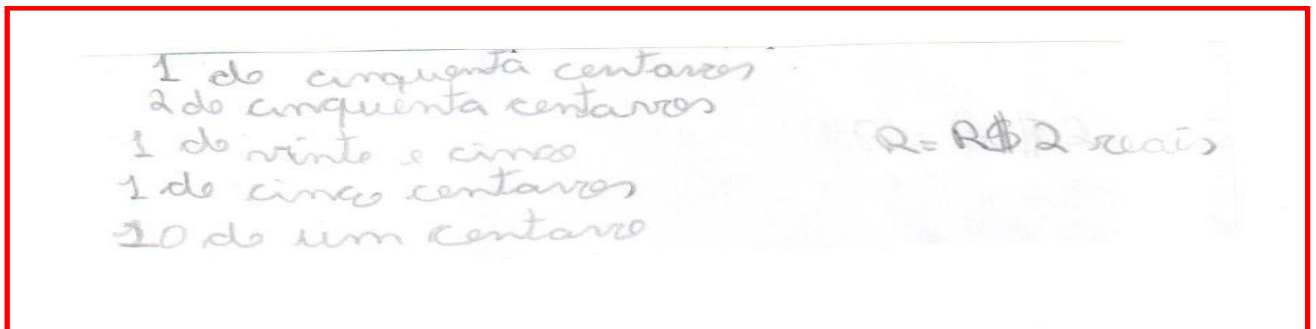 1 de cinquenta centavos
2 de cinquenta centavos
1 de vinte e cinco
1 de cinco centavos
10 de um centavo
R= R$ 2 reais